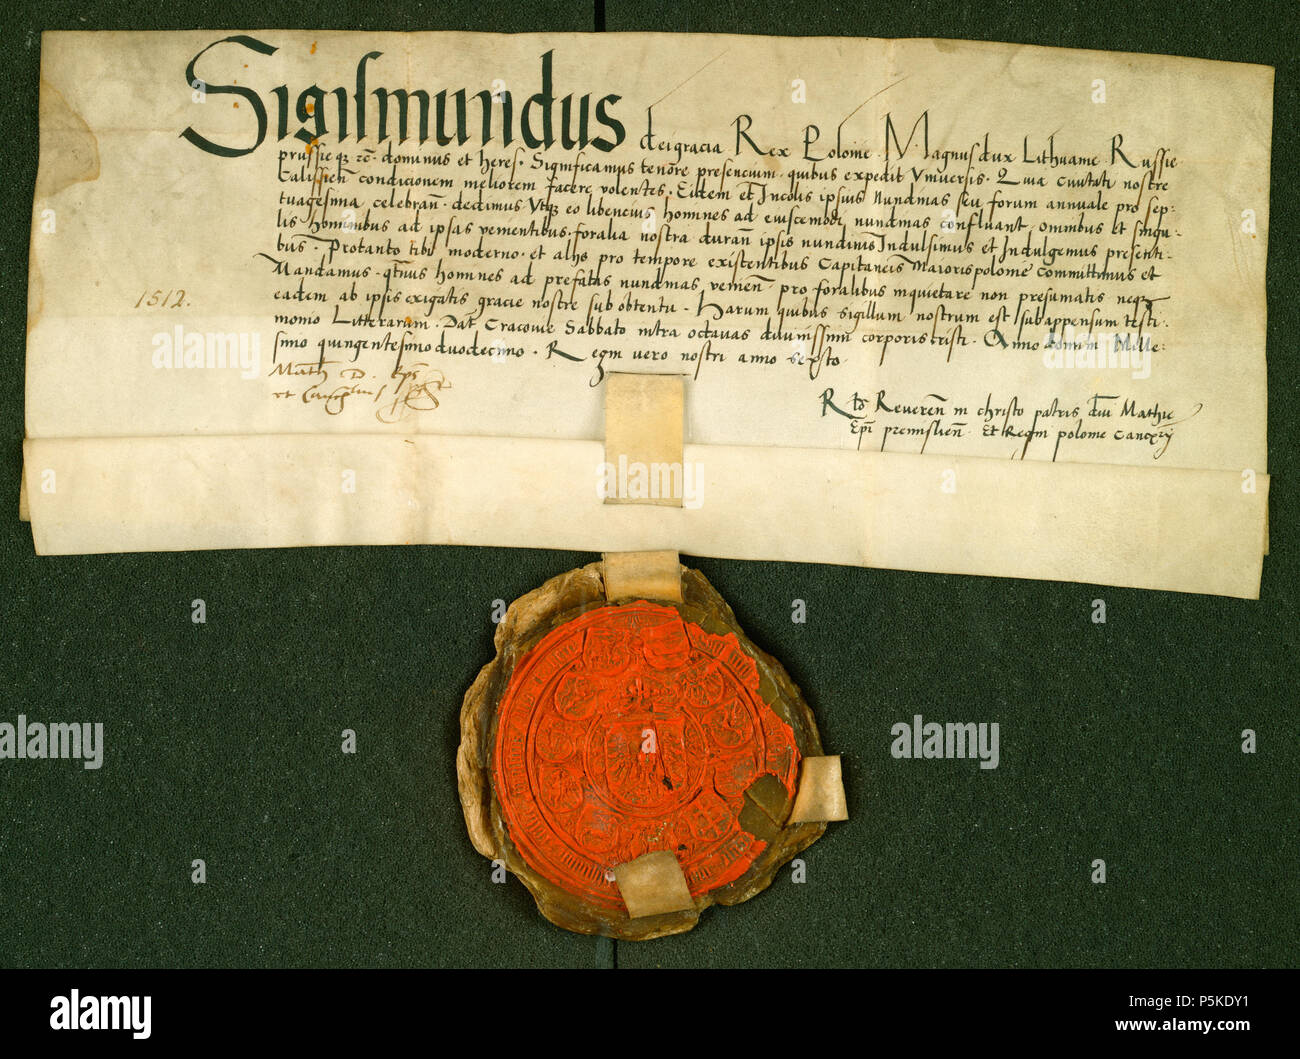 Sigismundus dei gracia Rex Polonie. Magnus dux Lithuanie Russie
prussieqz zc̄. dominus et heres. Significamus tenōre presencium. quibus expedit Vniuersis. Quia Ciuitati nostre
Calissieñ condicionem meliorem facere volentes. Eidem et Incolis ipsius Nundinas seu forum annuale pro sep-
tuagesima celebrañ. dedimus Vtqz eo libencius homines ad eiuscemodi nundinas confluant, omnibus et singu-
lis hominibus ad ipsas venientibus. foralia nostra durañ ipsis nundinis Indulsimus et Indulgemus presenti-
bus. Protanto tibi moderno. et aliis pro tempore existentibus Capitaneis Maiorispolonie committimus et
Mandamus. homines ad prefatas nundinas, venieñ pro foralibus inquietare non presumatis neqz
eadem ab ipsis exigatis gracie nostre sub obtentu. Harum quibus sigillum nostrum est subappensum testi-
1512.
monio Litterarum. Dat̄ Cracouie Sabbato infra octauas diuinissimi corporis cristi. Anno domini Mille-
simo quingentesimo duodecimo. Regni vero nostri anno sexto.
Math D. Ep̄s
et
Rtō Reuereñ in christo patris dñi Mathie
Ep̄i premislieñ. Et Regni polonie Cancrÿ
a alamy
alamy
P5KDY1
www.alamy.com